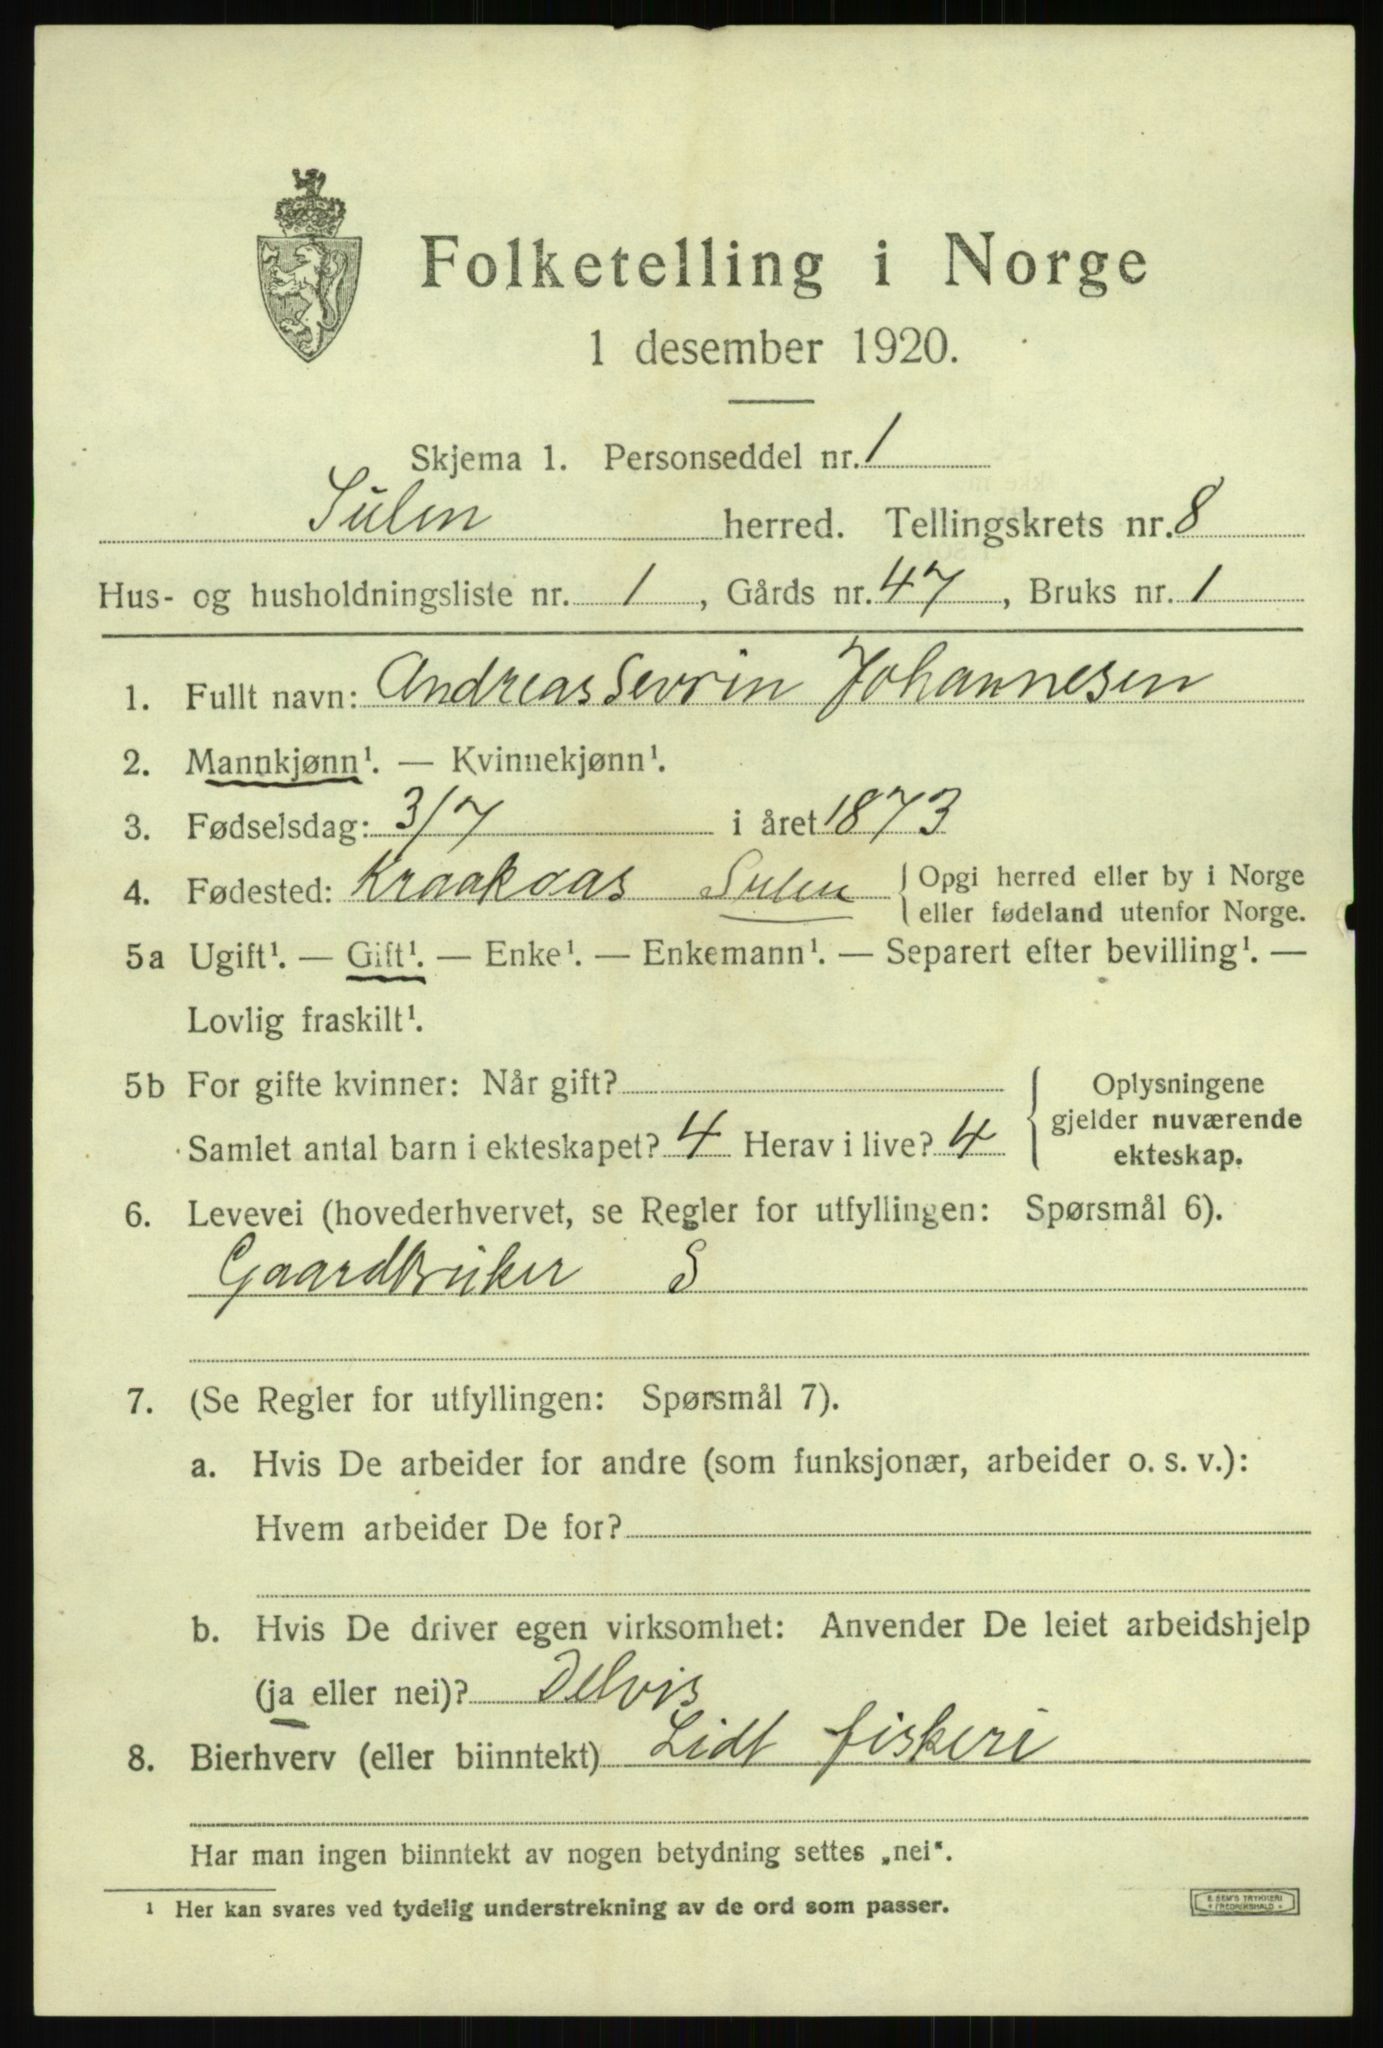 Folketelling i Norge
1 desember 1920.
Skjema 1. Personseddel nr. 1
Sulen herred. Tellingskrets nr. 8
Hus- og husholdningsliste nr. 1, Gårds nr. 47, Bruks nr. 1
1. Fullt navn: Andreas Sevrin Johannesen
2. Mannkjønn¹. — Kvinnekjønn¹.
3. Fødselsdag: 3/7 i året 1873
4. Fødested: Kraakaas Sulen { Opgi herred eller by i Norge
eller fødeland utenfor Norge.
5a Ugift¹. — Gift¹. — Enke¹. — Enkemann¹. — Separert efter bevilling¹. —
Lovlig fraskilt¹.
5b For gifte kvinner: Når gift?
Samlet antal barn i ekteskapet? 4 Herav i live? 4
Oplysningene
gjelder nuværende
ekteskap.
6. Levevei (hovederhvervet, se Regler for utfyllingen: Spørsmål 6).
Gaardbruker S
7. (Se Regler for utfyllingen: Spørsmål 7).
a. Hvis De arbeider for andre (som funksjonær, arbeider o. s. v.):
Hvem arbeider De for?
b. Hvis De driver egen virksomhet: Anvender De leiet arbeidshjelp
(ja eller nei)? Delvis
8. Bierhverv (eller biinntekt) Lidt fiskeri
Har man ingen biinntekt av nogen betydning settes „nei“.
¹ Her kan svares ved tydelig understrekning av de ord som passer.
E. SEM'S TRYKKERI
* FREDRIKSHALD *